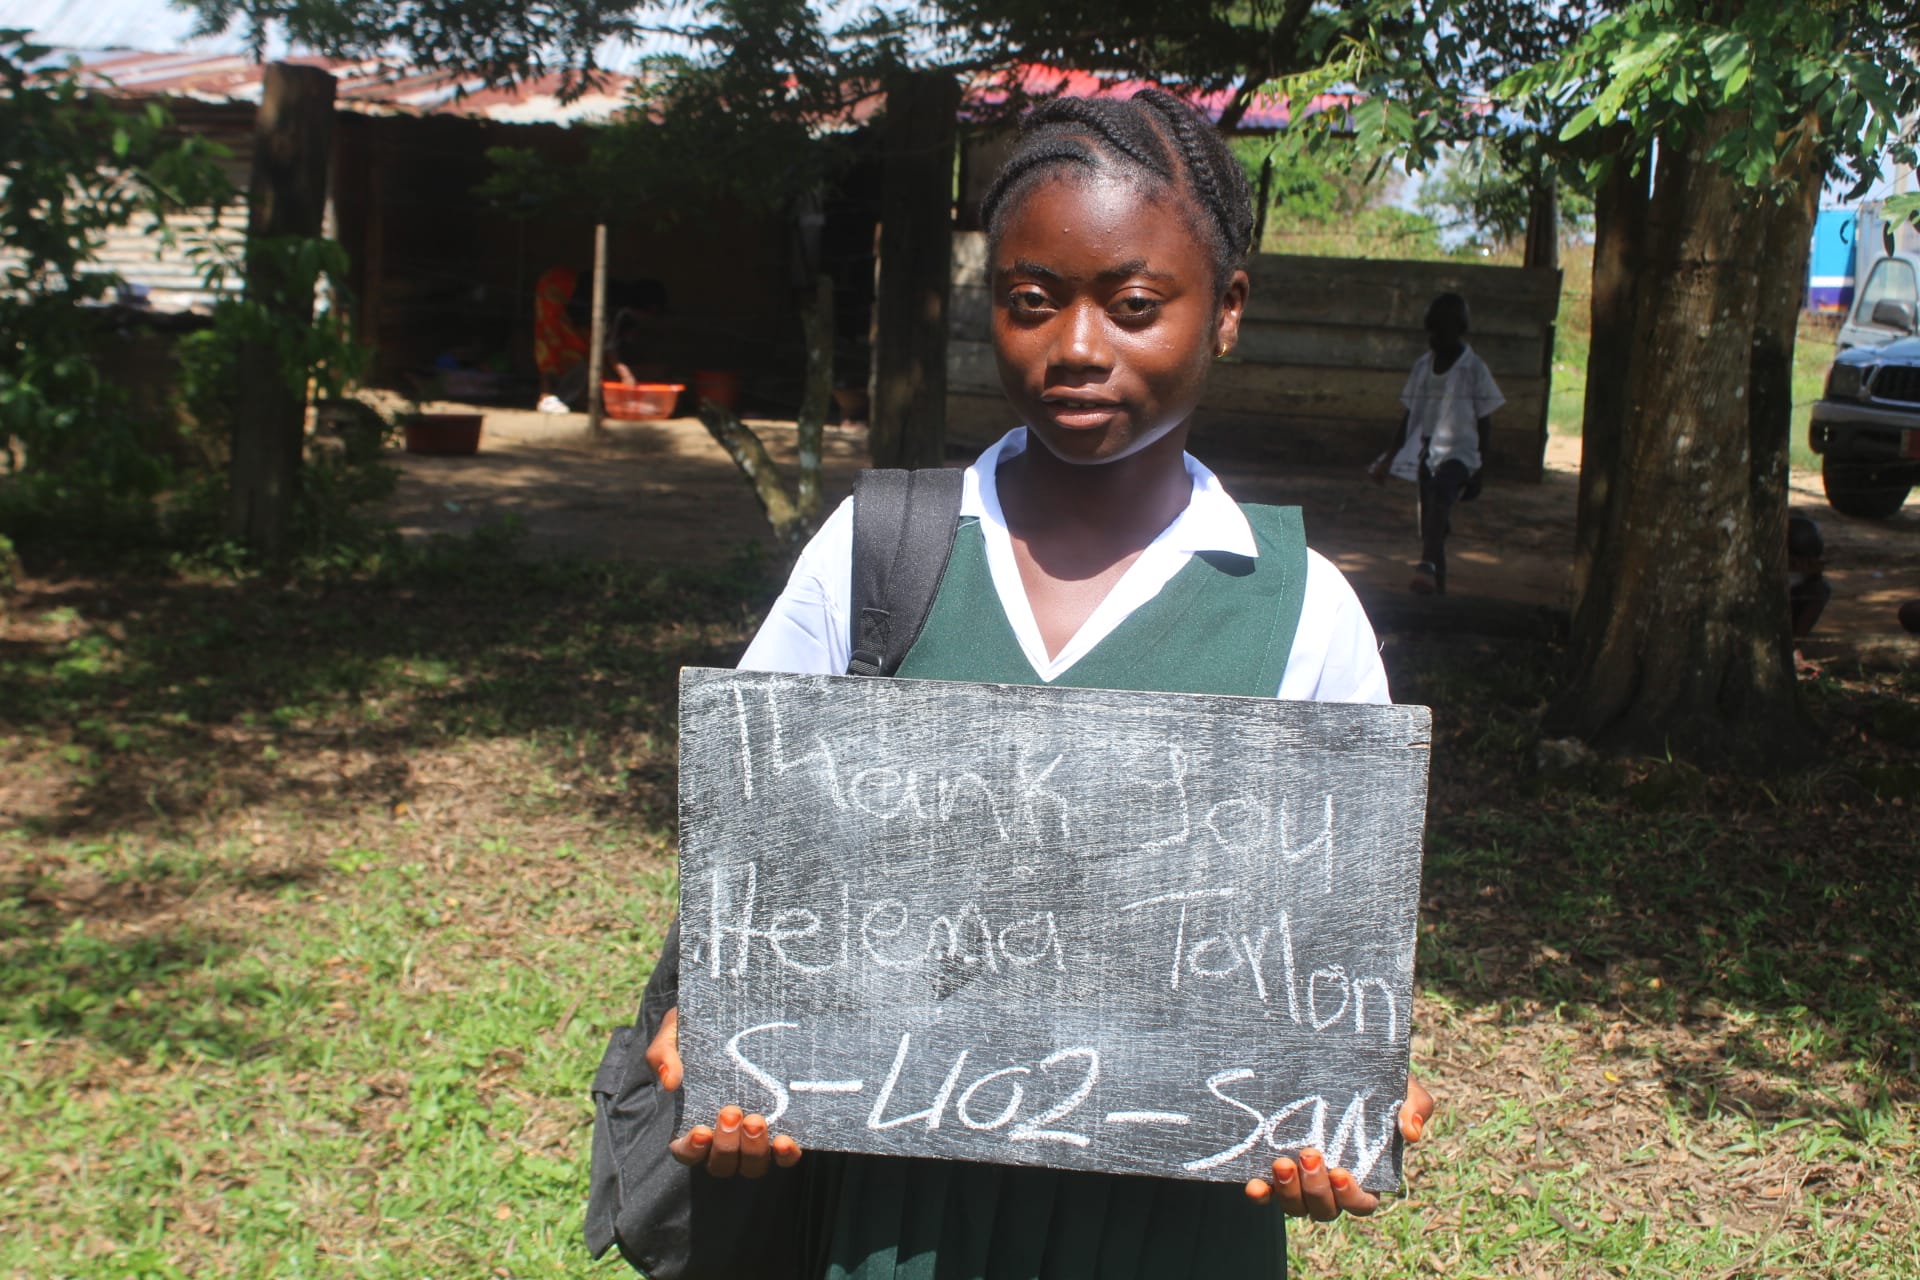 Thank You
Helena Taylor
S-402-San